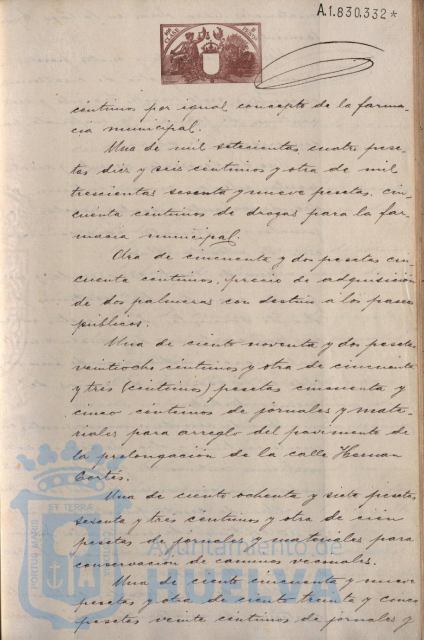 A.1.830.332*
céntimos por igual concepto de la farma-
cia municipal.
Una de mil setecientas cuatro pese-
tas diez y seis centimos y otra de mil
trescientas sesenta y nueve pesetas, cin-
cuenta céntimos de drogas para la far-
macia municipal.
Otra de cincuenta y dos pesetas cin-
cuenta centimos, precio de adquisición
de dos palmeras con destino a los paseos
públicos.
Una de ciento noventa y dos pesetas
veintiocho centimos y otra de cincuenta
y tres (centimos) pesetas cincuenta y
cinco centimos de jornales y mate-
riales para arreglo del pavimento de
la prolongación de la calle Hernan
Cortés.
Una de ciento ochenta y siete pesetas
sesenta y tres centimos y otra de cien
pesetas de jornales y materiales para
conservacion de caminos vecinales.
Una de ciento cincuenta y nueve
pesetas y otra de ciento treinta y cinco
pesetas veinte centimos de jornales y
PORTUS MARIS
ET TERRÆ
Ayuntamiento de
HUELVA